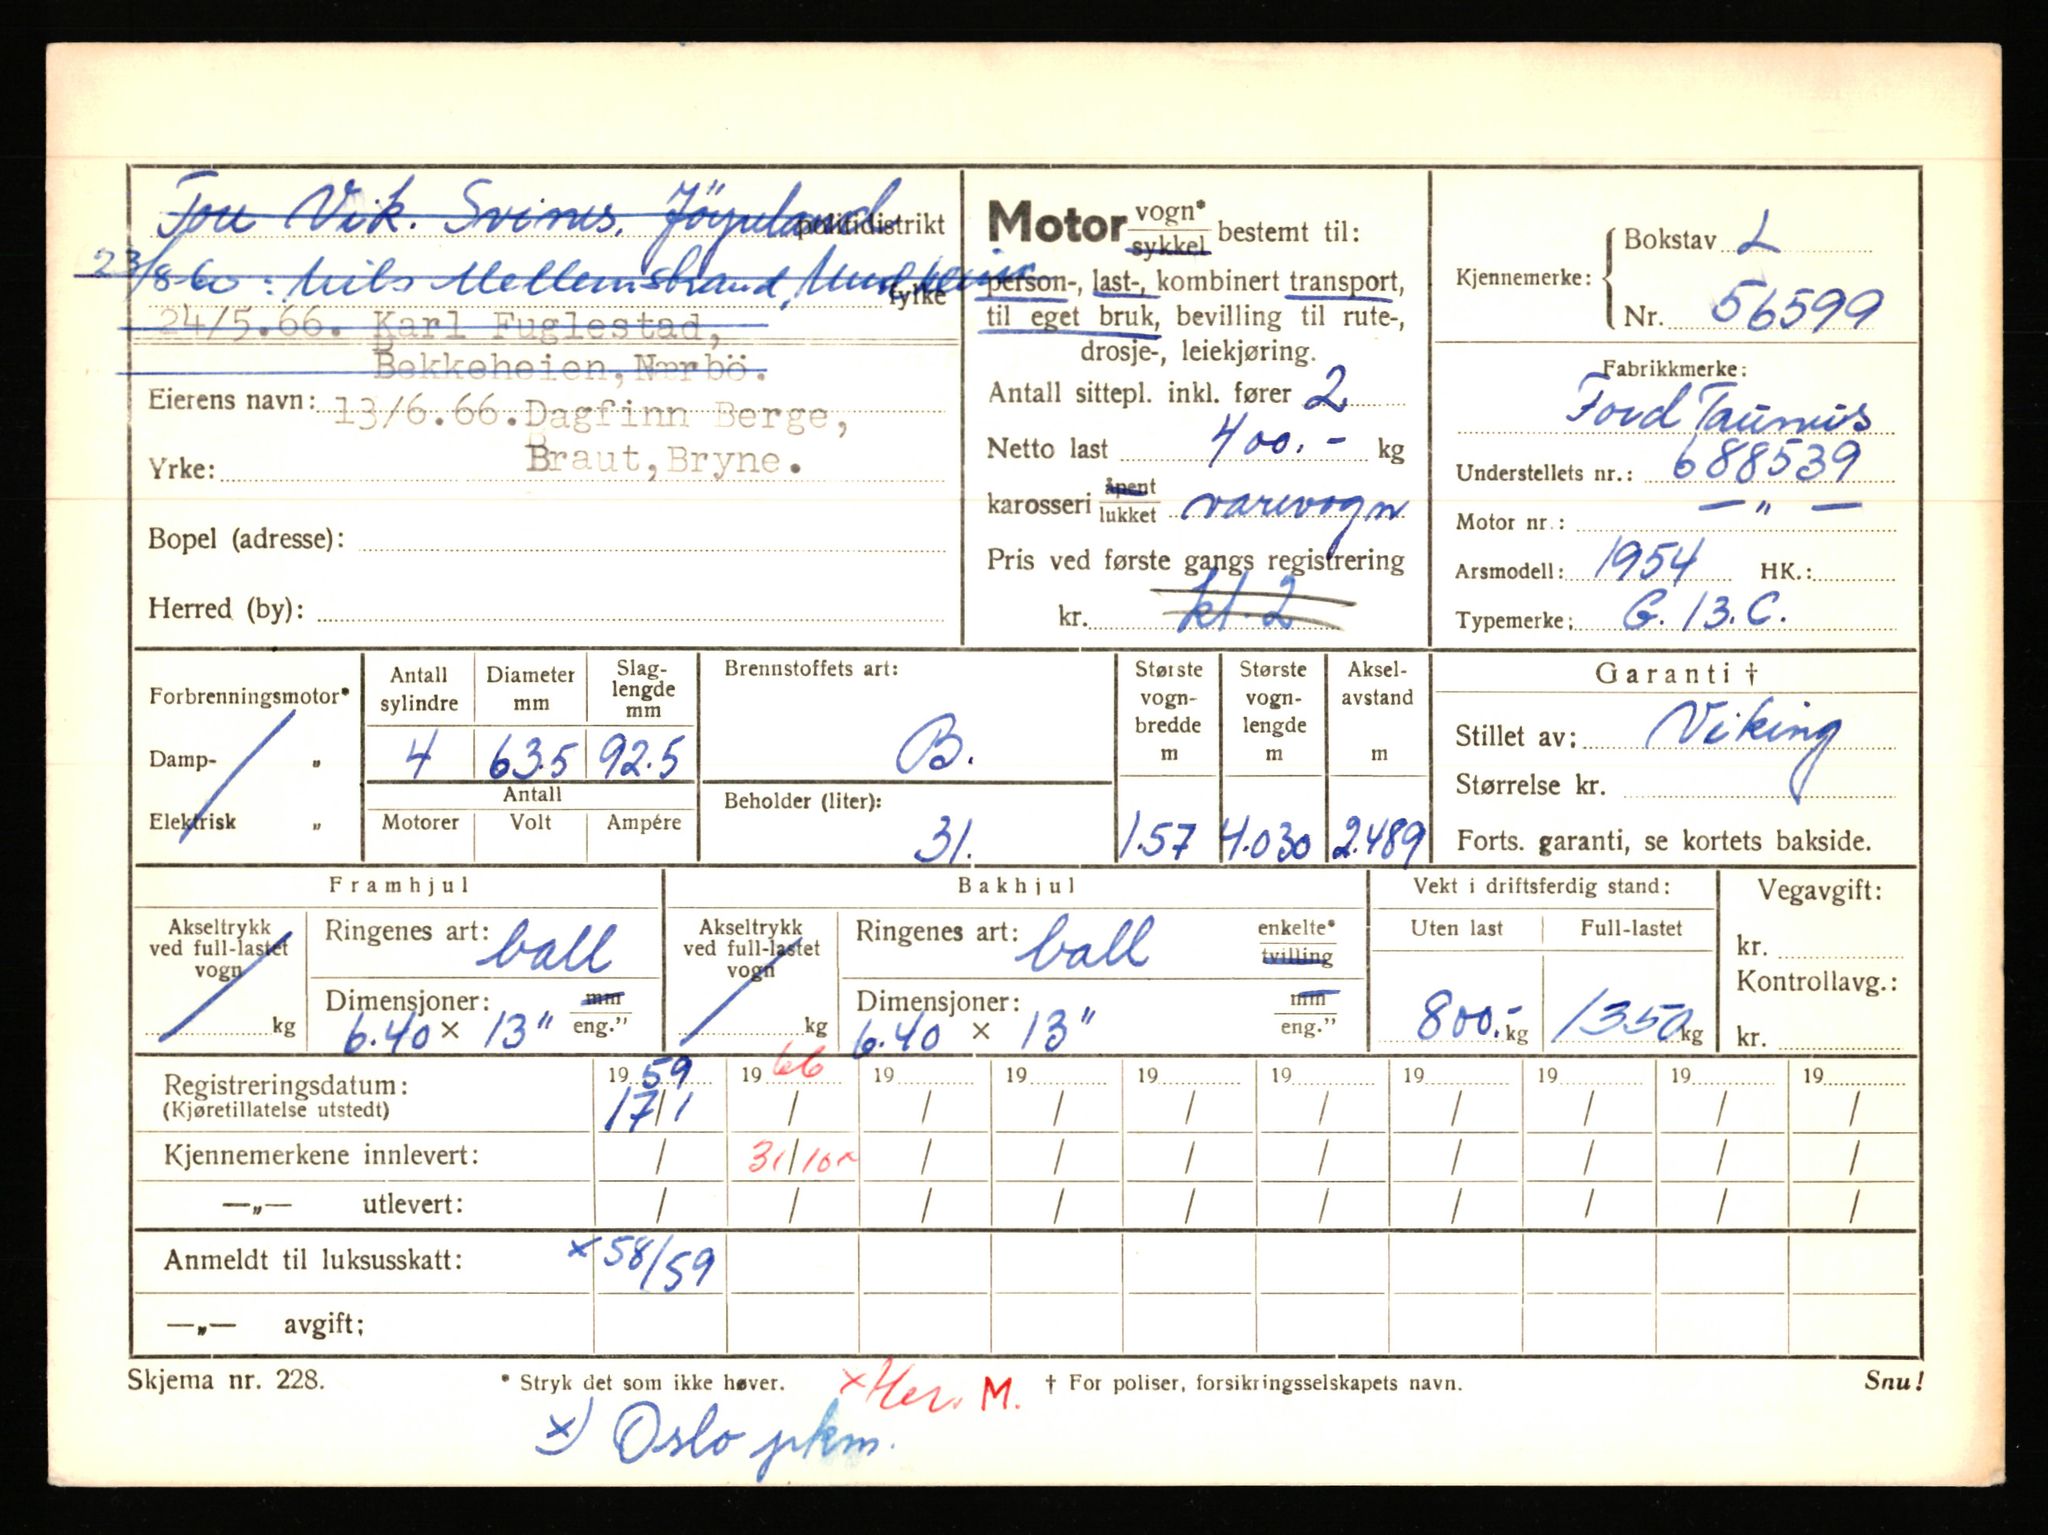 Tou Vik. Svines, Jørpeland politidistrikt
23/8-60: Nils Mellemstrand, fylke
24/5.66. Karl Fuglestad,
Bekkeheien, Nærbö.
Eierens navn: 13/6.66. Dagfinn Berge,
Yrke: Braut, Bryne.
Bopel (adresse):
Herred (by):
Motor vogn* sykkel bestemt til:
person-, last-, kombinert transport,
til eget bruk, bevilling til rute-,
drosje-, leiekjøring.
Antall sittepl. inkl. fører 2
Netto last 400.- kg
karosseri åpent lukket varevogn
Pris ved første gangs registrering
kr. kl. 2
Kjennemerke: Bokstav L
Nr. 56599
Fabrikkmerke:
Ford Taunus
Understellets nr.: 688539
Motor nr.: — " —
Arsmodell: 1954 HK.:
Typemerke: G. 13. C.
Forbrenningsmotor*
Damp- "
Elektrisk "
Antall sylindre Diameter mm Slag-lengde mm
4 63.5 92.5
Antall
Motorer Volt Ampére
Brennstoffets art:
B.
Beholder (liter):
31.
Største vogn-bredde m Største vogn-lengde m Aksel-avstand m
1.57 4.030 2.489
Garanti †
Stillet av: Viking
Størrelse kr.
Forts. garanti, se kortets bakside.
Framhjul
Akseltrykk ved full-lastet vogn kg
Ringenes art: ball
Dimensjoner: mm eng."
6.40 × 13"
Bakhjul
Akseltrykk ved full-lastet vogn kg
Ringenes art: ball enkelte* tvilling
Dimensjoner: mm eng."
6.40 × 13"
Vekt i driftsferdig stand:
Uten last Full-lastet
800.- kg 1350 kg
Vegavgift:
kr.
Kontrollavg.:
kr.
Registreringsdatum: 19 59 19 66 19 19 19 19 19 19 19 19
(Kjøretillatelse utstedt) 17/1 / / / / / / / / /
Kjennemerkene innlevert: / 31/10 / / / / / / / /
—„— utlevert: / / / / / / / / / /
Anmeldt til luksusskatt: × 58/59
—„— avgift:
Skjema nr. 228. * Stryk det som ikke høver. × Her. M. † For poliser, forsikringsselskapets navn. Snu!
×) Oslo pkm.